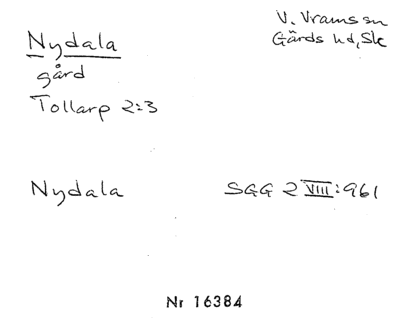 Nydala
V. Vrams sn
Gärds hd, Sk
gård
Tollarp 2:3
Nydala
SGG 2 VIII:961
Nr 16384